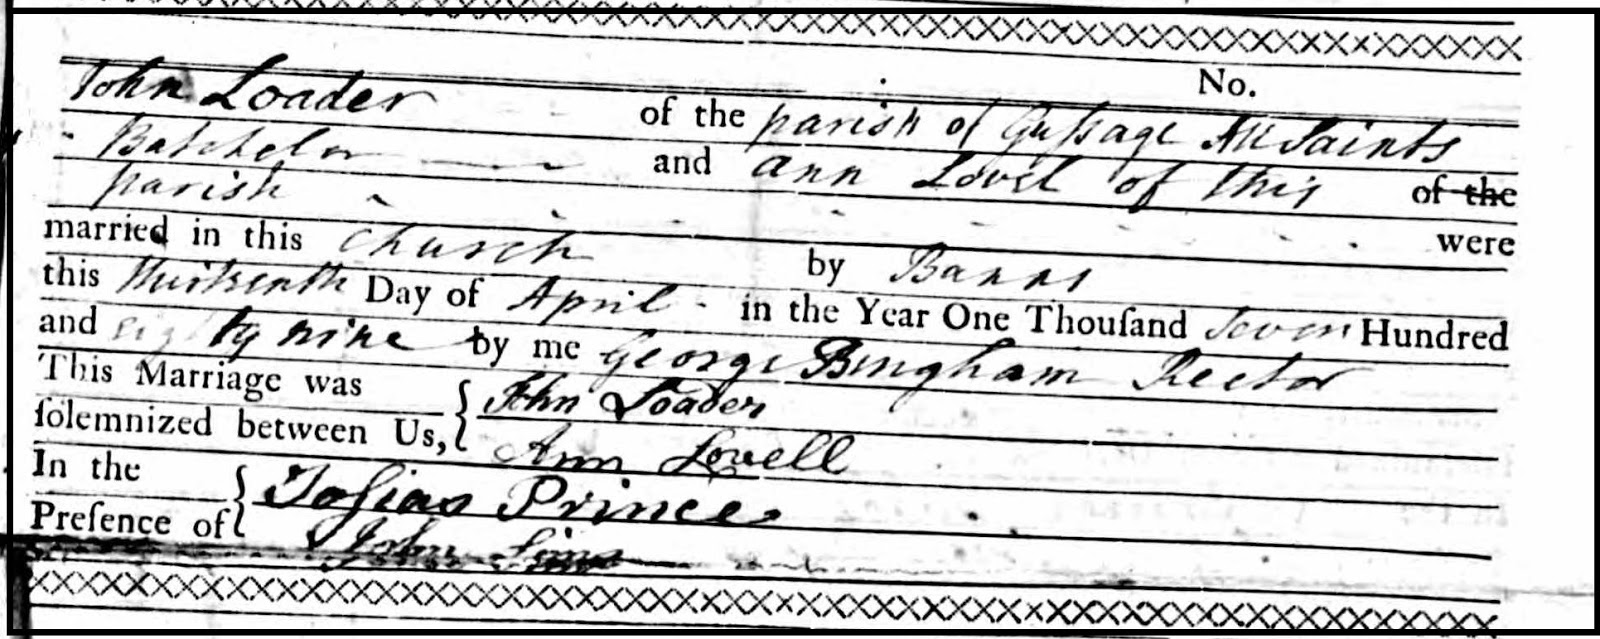 No.
John Loader of the parish of Guſsage All Saints
Batchelor and ann Lovel of this of the
parish were
married in this Church by Banns
this thirteenth Day of April in the Year One Thouſand Seven Hundred
and eighty nine by me George Bingham Rector
This Marriage was John Loader
ſolemnized between Us, Ann Lovell
In the Joſias Prince
Preſence of John Sims